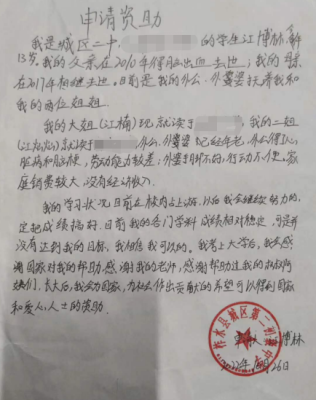 申请资助
我是城区二中 的学生江博林,年龄
13岁。我的父亲在2010年得脑出血去逝;我的母亲
在2017年相继去逝。目前是我的外公、外婆婆扶养我和
我的两位姐姐
我的大姐(江楠)现就读于 ,我的二姐
就读于 外公、外婆婆已经年老,外公得
脏病和脑梗,劳动能力较差;外婆手 不好,行动不便。家
庭销费较大,没有经济收入。
我的学习状况:目前在校内占上 以后我会继续努力的,
定把成绩搞好。目前我的各门学科成绩相对稳定,可是并
没有达到我的目标,我相信我可以的。我考上大学后,我会感
谢国家对我的帮助,感谢我的老师,感谢帮助过我的叔叔阿
姨们。长大后,我会为国家,为社会作出贡献的希望可以得到国家
和爱心人士的资助。
柞水县城区第二初级中学
博林
2022年 月26日